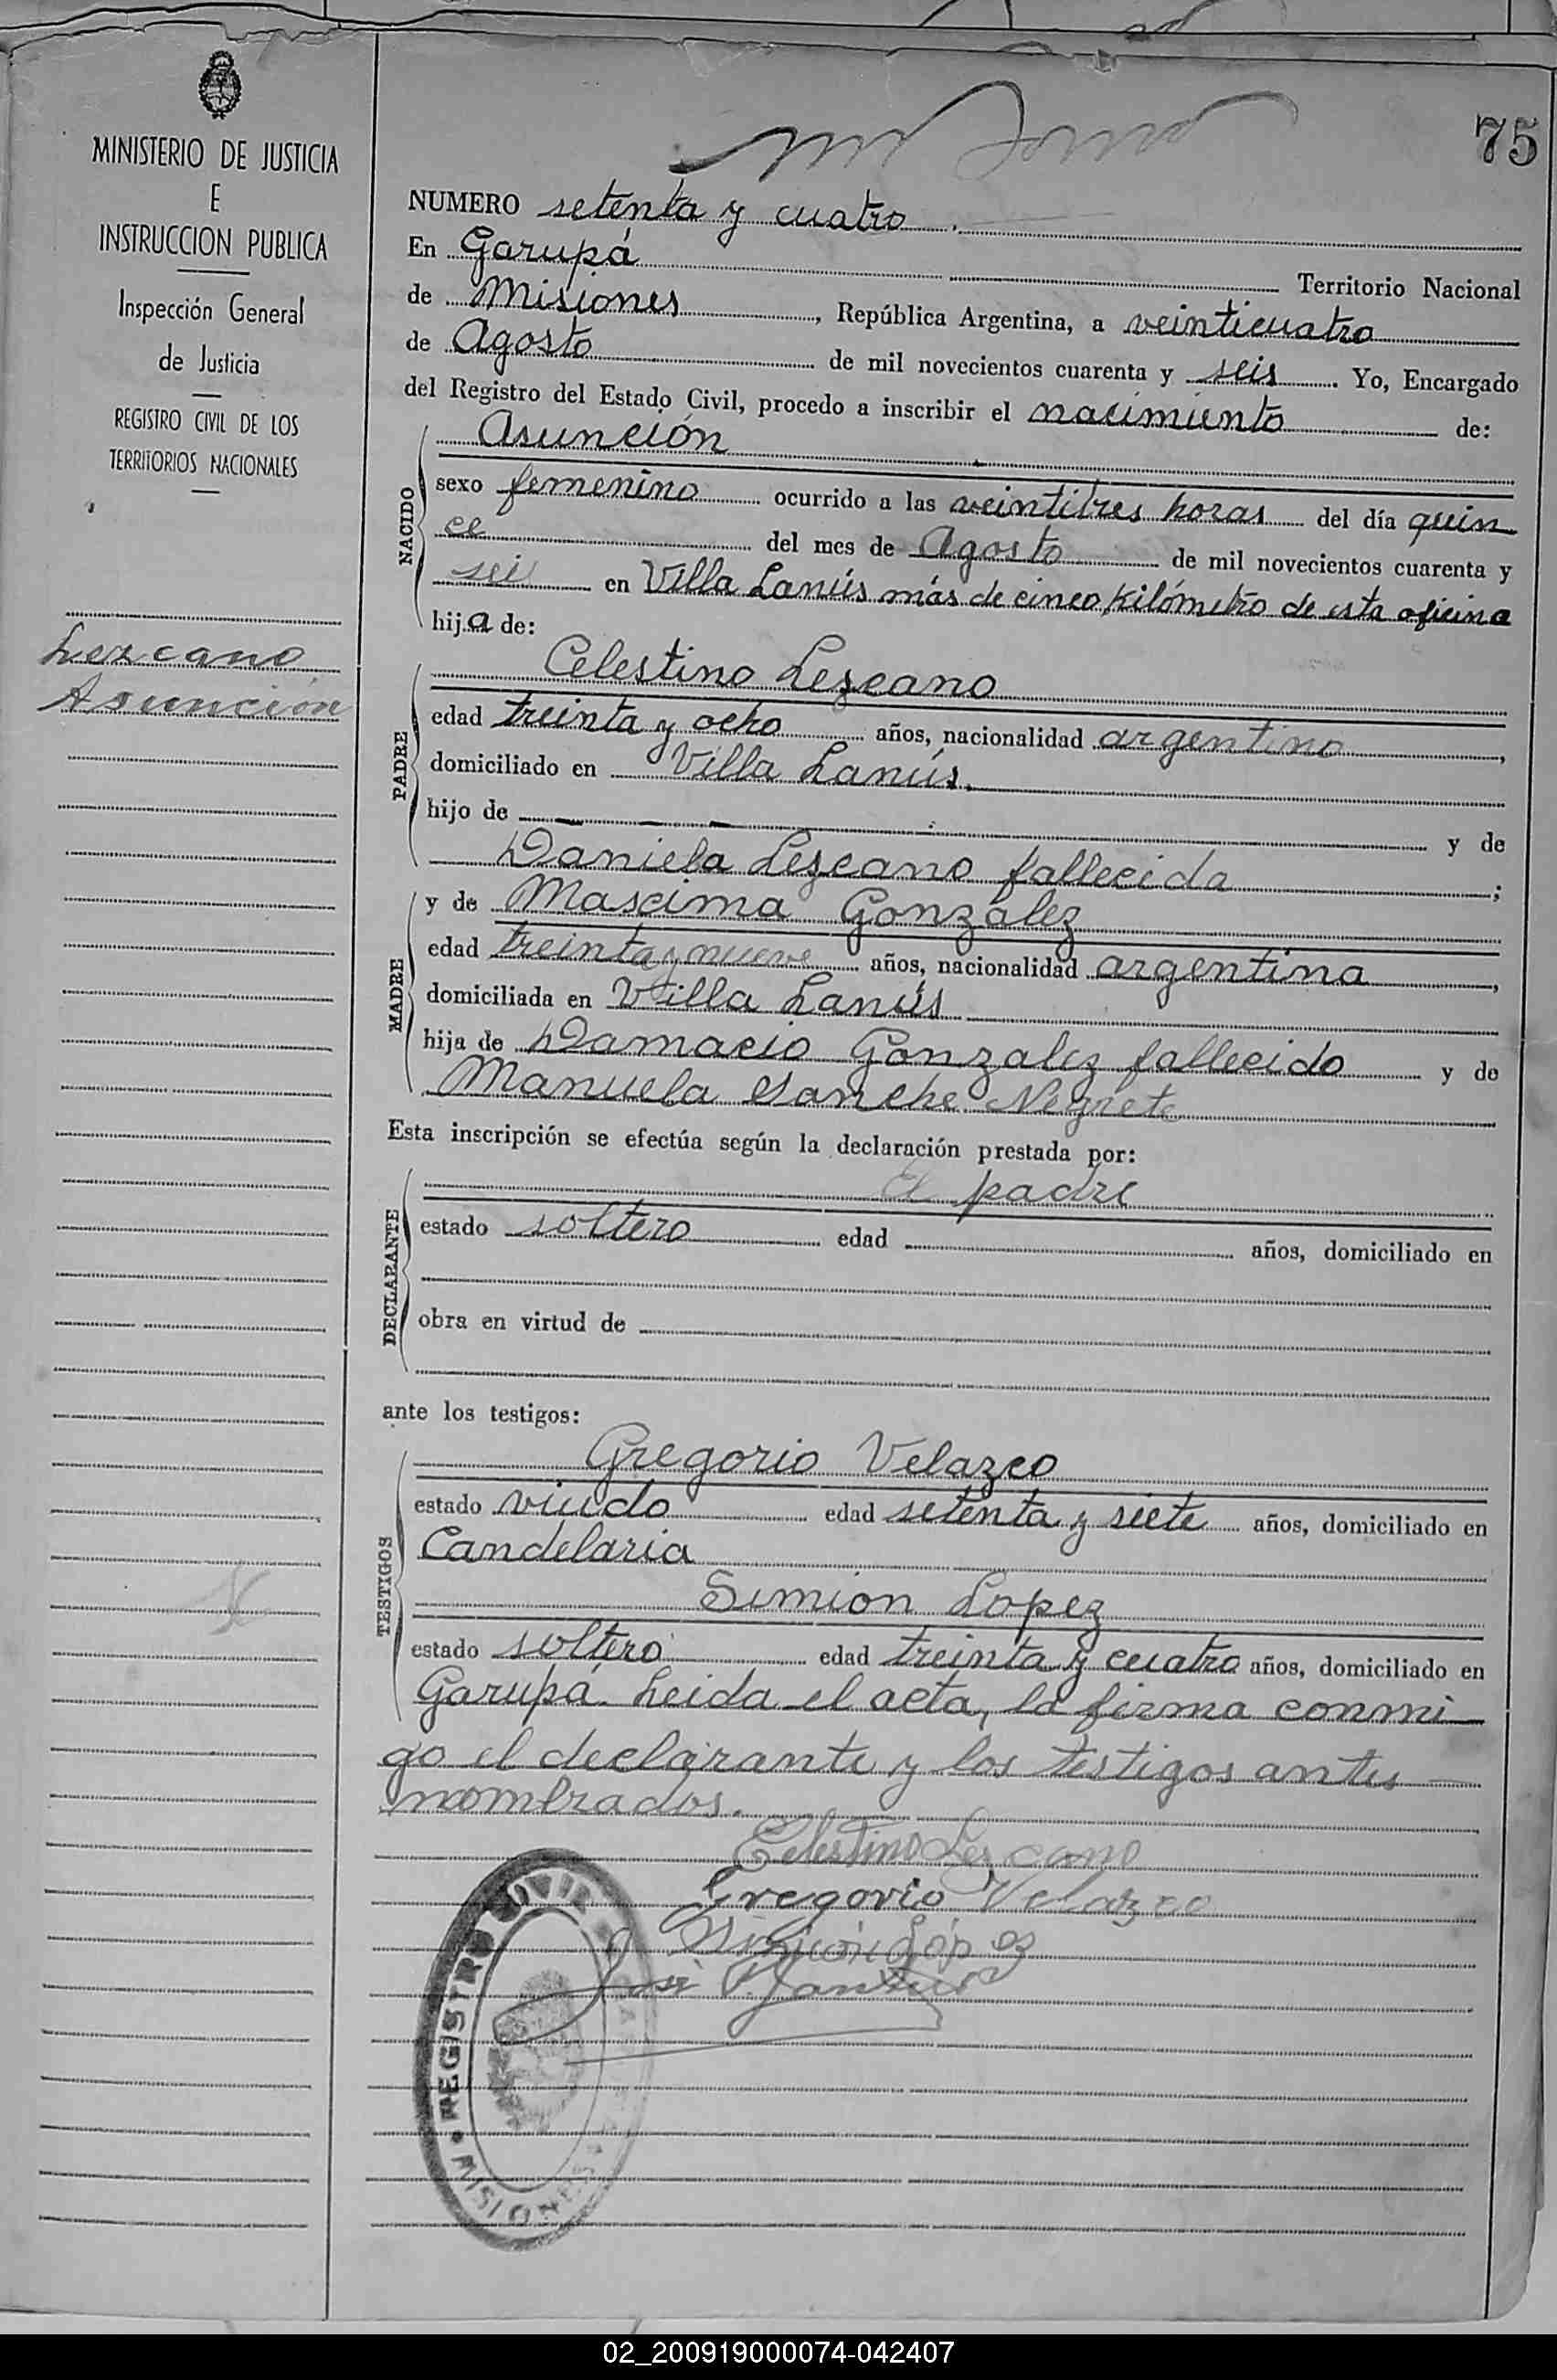 75
MINISTERIO DE JUSTICIA
E
INSTRUCCION PUBLICA
Inspección General
de Justicia
REGISTRO CIVIL DE LOS
TERRITORIOS NACIONALES
Lezcano
Asunción
NUMERO setenta y cuatro.
En Garupá Territorio Nacional
de Misiones, República Argentina, a veinticuatro
de Agosto de mil novecientos cuarenta y seis Yo, Encargado
del Registro del Estado Civil, procedo a inscribir el nacimiento de:
NACIDO
Asunción
sexo femenino ocurrido a las veintitres horas del día quin
ce del mes de Agosto de mil novecientos cuarenta y
seis en Villa Lanús más de cinco kilómetro de esta oficina
hija de:
PADRE
Celestino Lezcano
edad treinta y ocho años, nacionalidad argentino,
domiciliado en Villa Lanús.
hijo de y de
Daniela Lezcano fallecida;
MADRE
y de Mascima González
edad treinta y nueve años, nacionalidad argentina,
domiciliada en Villa Lanús
hija de Damacio Gonzalez fallecido y de
Manuela Sanche Negrete
Esta inscripción se efectúa según la declaración prestada por:
DECLARANTE
el padre
estado soltero edad años, domiciliado en
obra en virtud de
ante los testigos:
TESTIGOS
Gregorio Velazco
estado viudo edad setenta y siete años, domiciliado en
Candelaria
Simión Lopez
estado soltero edad treinta y cuatro años, domiciliado en
Garupá. Leida el acta, la firma conmi
go el declarante y los testigos antes
nombrados.
Celestino Lezcano
Gregorio Velazco
Simion López
José
REGISTRO CIVIL
MISIONES
02_200919000074-042407